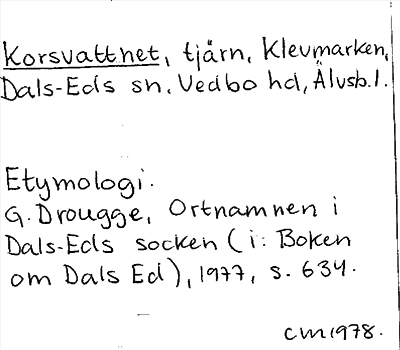 Korsvattnet, tjärn, Klevmarken,
Dals-Eds sn. Vedbo hd, Älvsb.l.
Etymologi.
G. Drougge, Ortnamnen i
Dals-Eds socken (i: Boken
om Dals Ed), 1977, s. 634.
CM 1978.